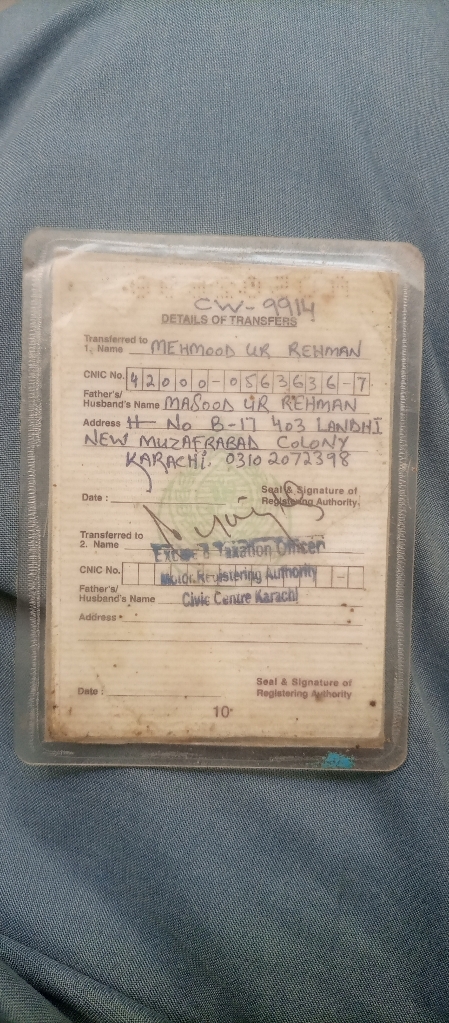 CW-9914
DETAILS OF TRANSFERS
Transferred to
1. Name MEHMOOD UR REHMAN
CNIC No. 42000-0563636-7
Father's/
Husband's Name MASOOD UR REHMAN
Address H No B-17 403 LANDHI
NEW MUZAFRABAD COLONY
KARACHI. 0310 2072398
Date :
Seal & Signature of
Registering Authority.
Transferred to
2. Name
Excise & Taxation Officer
CNIC No.
Motor Registering Authority
Father's/
Husband's Name
Civic Centre Karachi
Address
Date :
Seal & Signature of
Registering Authority
10